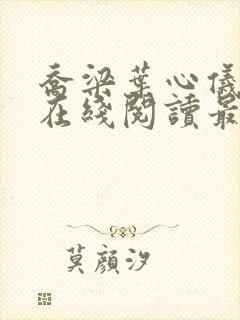 喬梁葉心儀
在綫閱讀最
莫顔汐